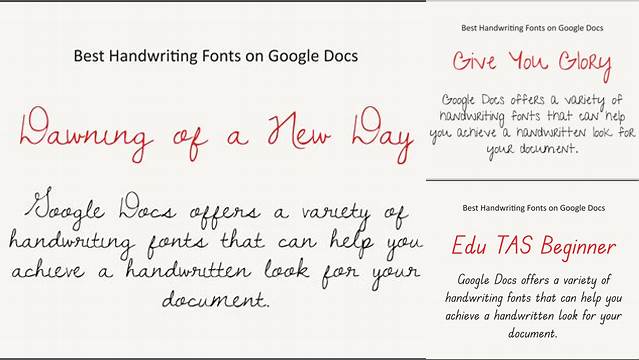 Best Handwriting Fonts on Google Docs
Dawning of a New Day
Google Docs offers a variety of
handwriting fonts that can help you
achieve a handwritten look for your
document.
Best Handwriting Fonts on Google Docs
Give You Glory
Google Docs offers a variety of
handwriting fonts that can help
you achieve a handwritten look for
your document.
Best Handwriting Fonts on Google Docs
Edu TAS Beginner
Google Docs offers a variety of
handwriting fonts that can help you
achieve a handwritten look for your
document.